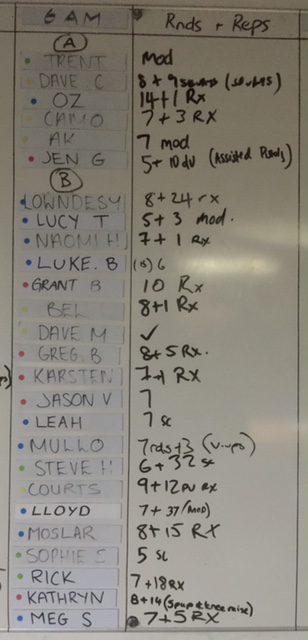 6 AM Rnds + Reps
A
TRENT mod
DAVE C 8 + 9 squats (scales)
OZ 14+1 Rx
CAMO 7 + 3 RX
AK 7 mod
JEN G 5+ 10 du (Assisted Pullups)
B
LOWNDESY 8+24 rx
LUCY T 5+3 mod.
NAOMI H 7+1 Rx
LUKE. B (B) 6
GRANT B 10 Rx
BEL 8+1 Rx
DAVE M ✓
GREG. B 8+5 RX.
KARSTEN 7+1 RX
JASON V 7
LEAH 7 sc
MULLO 7rds+3 (V-ups)
STEVE H 6+32 sc
COURTS 9+12 RX
LLOYD 7 + 37
MOSLAR 8+15 RX
SOPHIE S 5 sc
RICK 7+18 RX
KATHRYN 8+14
MEG S 7+5 RX